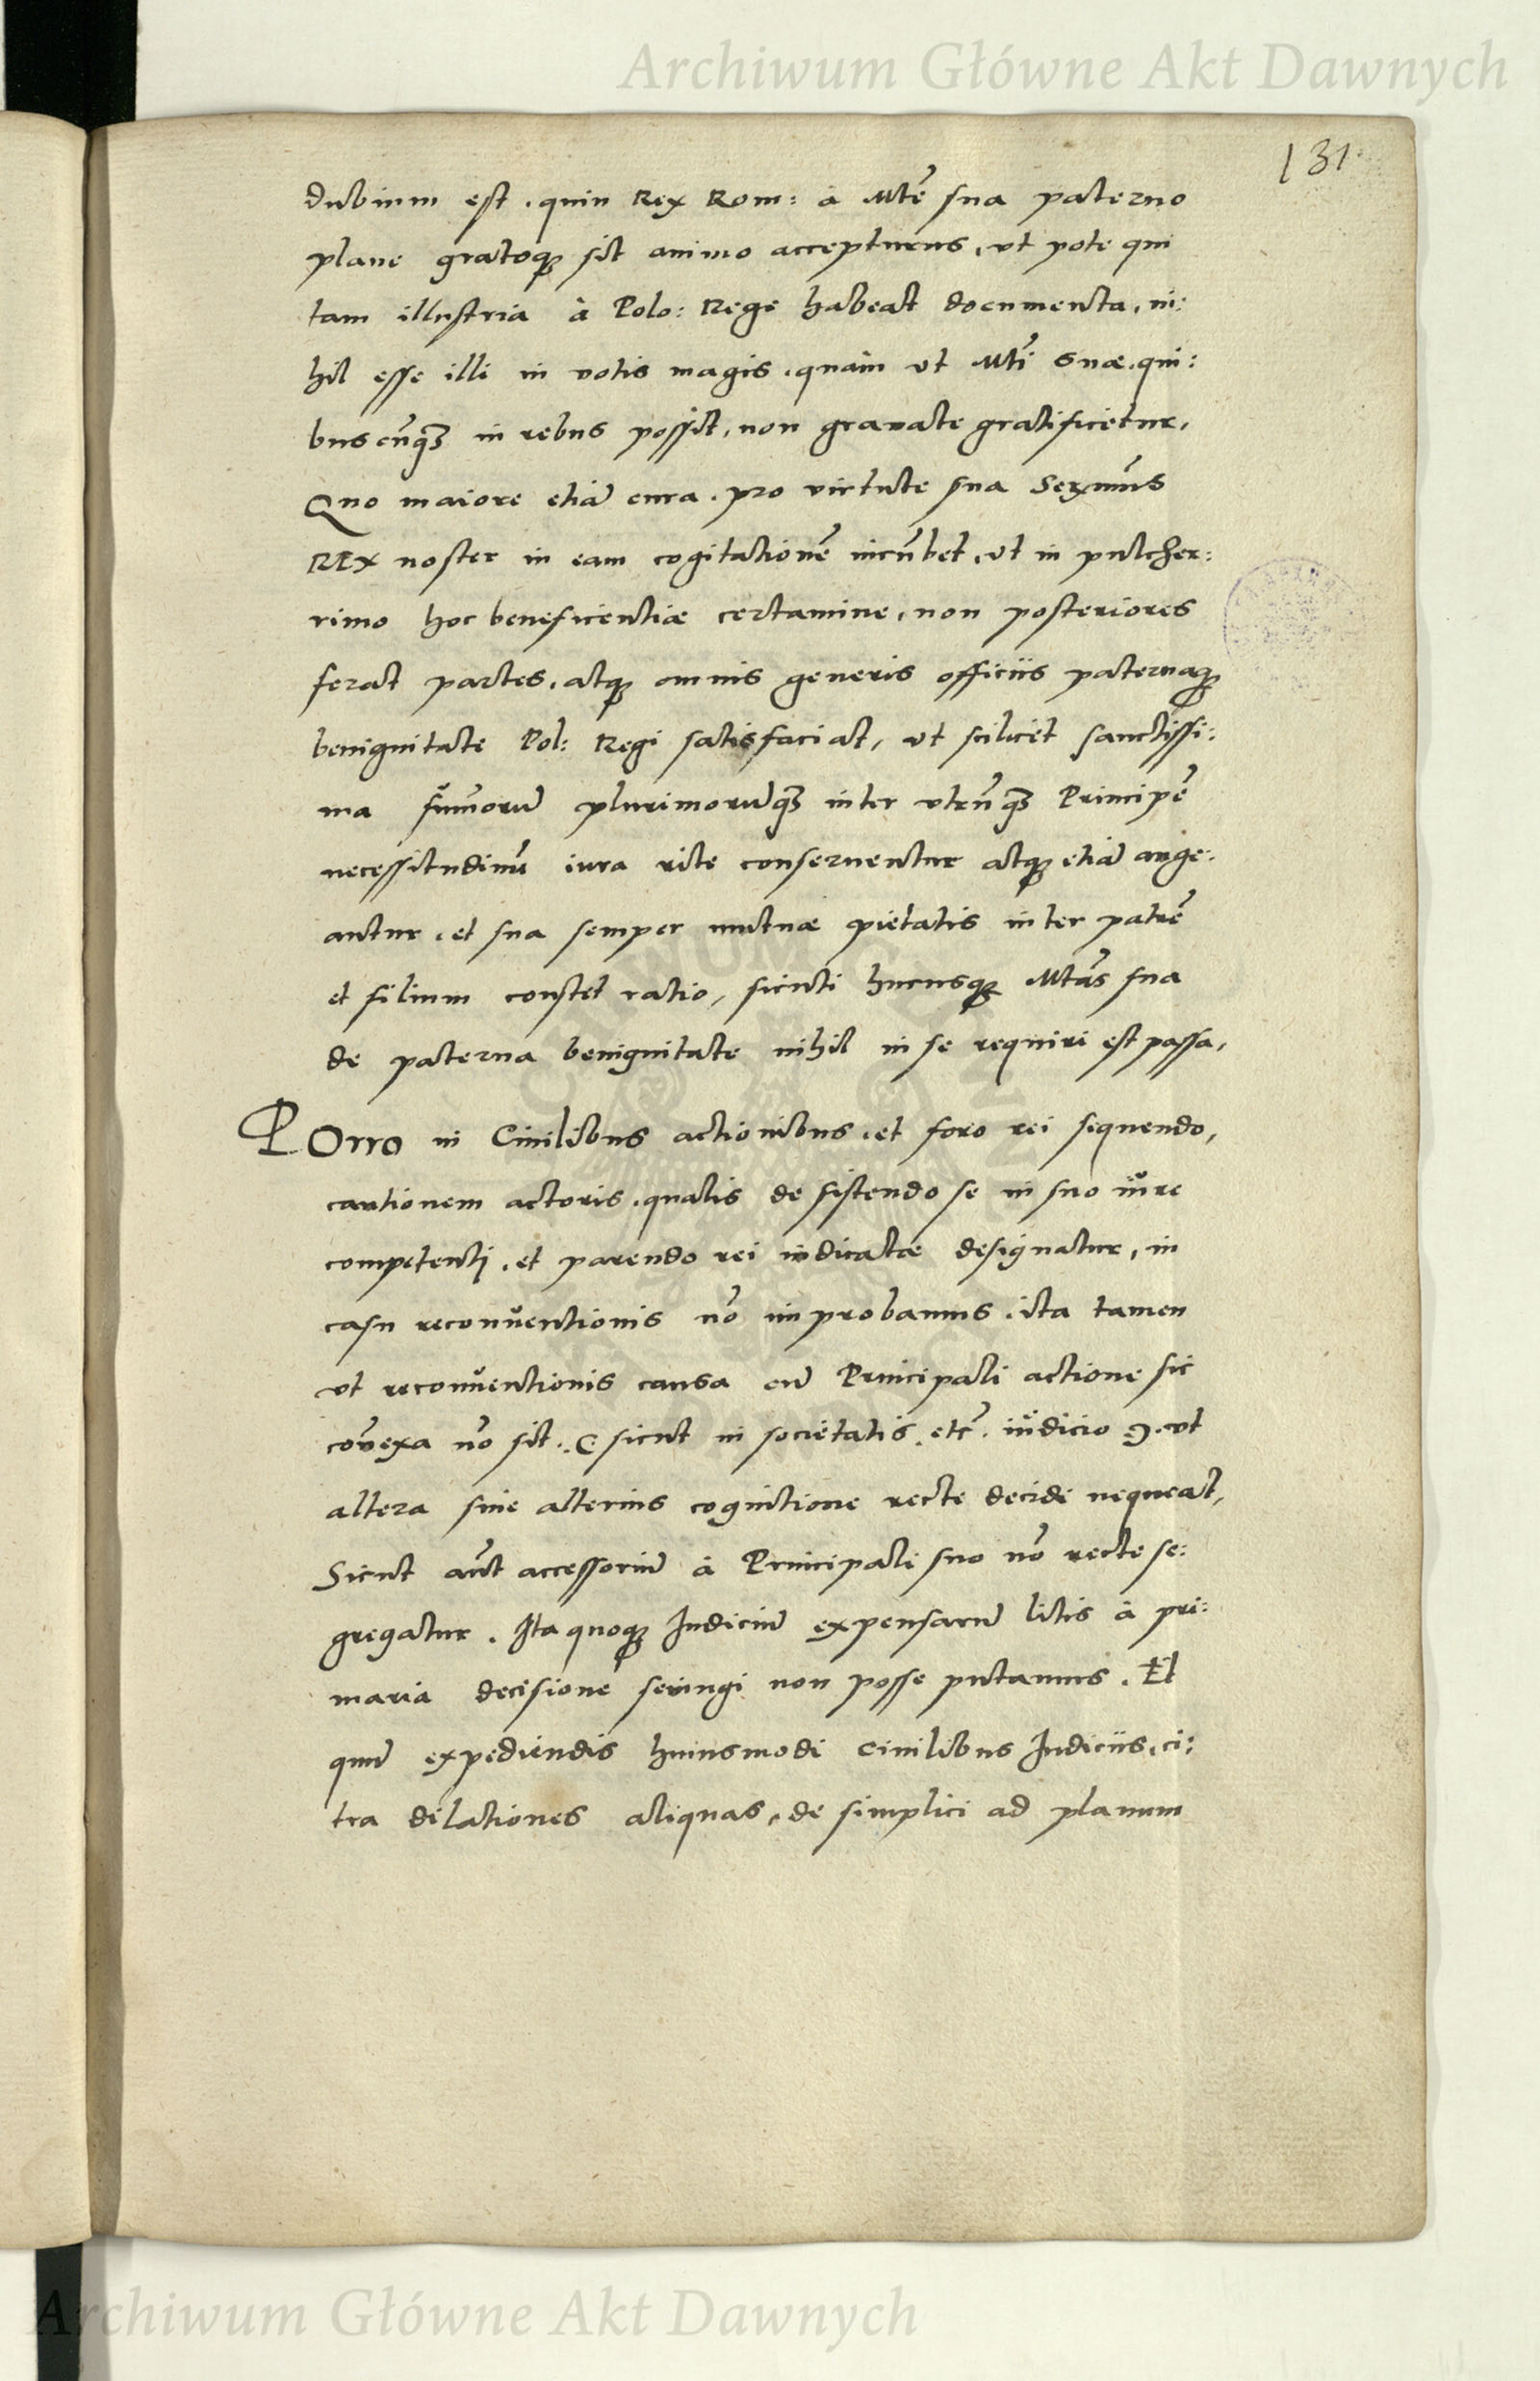 Archiwum Główne Akt Dawnych
131.
dubium est. quin Rex Rom: à Mte͂ sua paterno
plane gratoq; sit animo accepturus, ut pote qui
tam illustria à Polo: Rege habeat documenta, ni:
hil esse illi in votis magis. quàm ut Mti͂ suæ. qui:
buscu͂q3 in rebus possit, non gravate gratificetur,
Quo maiore etia͂ cura. pro virtute sua Serxmu͂s
REx noster in eam cogitatione͂ incu͂bet, ut in pulcher:
rimo hoc beneficentiæ certamine, non posteriores
ferat partes. atq; omnis generis officiis paternaq;
benignitate Pol: Regi satisfaciat, ut scilicet sanctissi:
ma su͂moru͂ plurimoru͂q3 inter utru͂q3 Principe͂
necessitudinu͂ iura rite conserventur atq; etia͂ auge:
antur. et sua semper mutuæ pietatis inter patre͂
et filium constet ratio, sicuti hucusq; Mta͂s sua
de paterna benignitate nihil in se requiri est passa,
POrro in Civilibus actionibus. et foro rei sequendo,
cautionem actoris. qualis de sistendo se in suo iure
competenti. et parendo rei iudicatæ designatur, in
casu reconventionis no͂ improbamus. ita tamen
ut reconventionis causa cu͂ Principali actione sic
co͂nexa no͂ sit. ( sicut in societatis. etc͂. iudicio ). ut
altera sine alterius cognitione recte decidi nequeat,
Sicut au͂t accessoriu͂ à Principali suo no͂ recte se:
gregatur. Ita quoq; Iudiciu͂ expensaru͂ litis à pri:
maria decisione seiungi non posse putamus. Et
quu͂ expediendis huiusmodi civilibus Iudiciis, ci:
tra dilationes aliquas, de simplici ad planum
Archiwum Główne Akt Dawnych